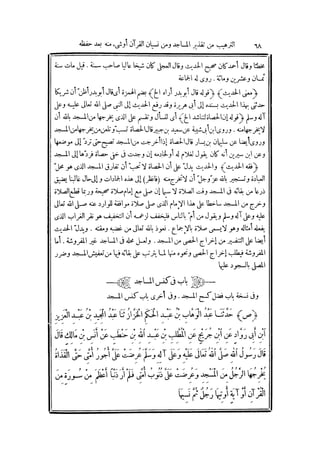 ٦٨ الترهيب من تقذير المساجد ومن نسيان القرآن أوشيء منه بعد حفظه
مخطئا وقال أحمد كان صحيح الحديث وقال العجلى كان شيخا عاليا صاحب سنة . قيل مات سنة
ثمان وعشرين ومائة . روى له الجماعة
﴿معنى الحديث﴾ ﴿قوله قال أبو بدر أراه الخ﴾ بضم الهمزة أى قال أبو بدر أظن أن شريكا
حدثنى بهذا الحديث بسنده إلى أبى هريرة وقد رفع الحديث إلى النبى صلى الله تعالى عليه وعلى
آله وسلم ﴿قوله إن الحصاة لتناشد الخ﴾ أى لتسأل وتقسم على الذى يخرجها من المسجد بالله أن
لا يخرجها منه . وروى ابن أبى شيبة عن سعيد بن جبير قال الحصاة تسب وتلعن من يخرجها من المسجد
وروى أيضا عن سليمان بن يسار قال الحصاة إذا أخرجت من المسجد تصيح حتى ترد إلى موضعها
وعن ابن سيرين أنه كان يقول لغلام له أو لخادمه إن وجدت فى خفى حصاة فردها إلى المسجد
﴿فقه الحديث﴾ والحديث يدل على أن الحصاة لا تحب أن تفارق المسجد الذى هو محل
العبادة وتستجير بالله عز وجل أن لا تخرج منه ﴿فانظر﴾ إلى هذه الجمادات وإلى حال غالبنا يضيق
ذرعا من بقائه فى المسجد وقت الصلاة لا سيما إن صلى مع إمام صلاة صحيحة وربما قطع الصلاة
وخرج من المسجد ساخطا على هذا الإمام الذى صلى صلاة موافقة للوارد عنه صلى الله تعالى
عليه وعلى آله وسلم ويقول من أم بالناس فليخفف لزعمه أن التخفيف هو نقر الغراب الذى
يفعله أمثاله وهو لا يسمى صلاة بالإجماع . نعوذ بالله تعالى من غضبه ومقته . ويدل الحديث
أيضا على التنفير من إخراج الحصى من المسجد . ولعل محله فى المساجد غير المفروشة . أما
المفروشة فيطلب إخراج الحصى ونحوه منها لما يترتب على بقائه فيها من تعفيش المسجد وضرر
المصلى بالسجود عليها
باب فى كنس المساجد
وفى نسخة باب فضل كنس المسجد . وفى أخرى باب كنس المسجد
﴿ص﴾ حَدَّثَنَا عَبْدُ الْوَهَّابِ بْنُ عَبْدِ الْحَكَمِ الْخَزَّازُ ثَنَا عَبْدُ الْمَجِيدِ بْنُ عَبْدِ الْعَزِيزِ
ابْنِ أَبِى رَوَّادٍ عَنِ ابْنِ جُرَيْجٍ عَنِ الْمُطَّلِبِ بْنِ عَبْدِ اللهِ بْنِ حَنْطَبٍ عَنْ أَنَسِ بْنِ مَالِكٍ قَالَ
قَالَ رَسُولُ اللهِ صَلَّى اللهُ تَعَالَى عَلَيْهِ وَعَلَى آلِهِ وَسَلَّمَ عُرِضَتْ عَلَىَّ أُجُورُ أُمَّتِى حَتَّى الْقَذَاةُ
يُخْرِجُهَا الرَّجُلُ مِنَ الْمَسْجِدِ وَعُرِضَتْ عَلَىَّ ذُنُوبُ أُمَّتِى فَلَمْ أَرَ ذَنْبًا أَعْظَمَ مِنْ سُورَةٍ مِنَ
الْقُرْآنِ أَوْ آيَةٍ أُوتِيَهَا رَجُلٌ ثُمَّ نَسِيَهَا